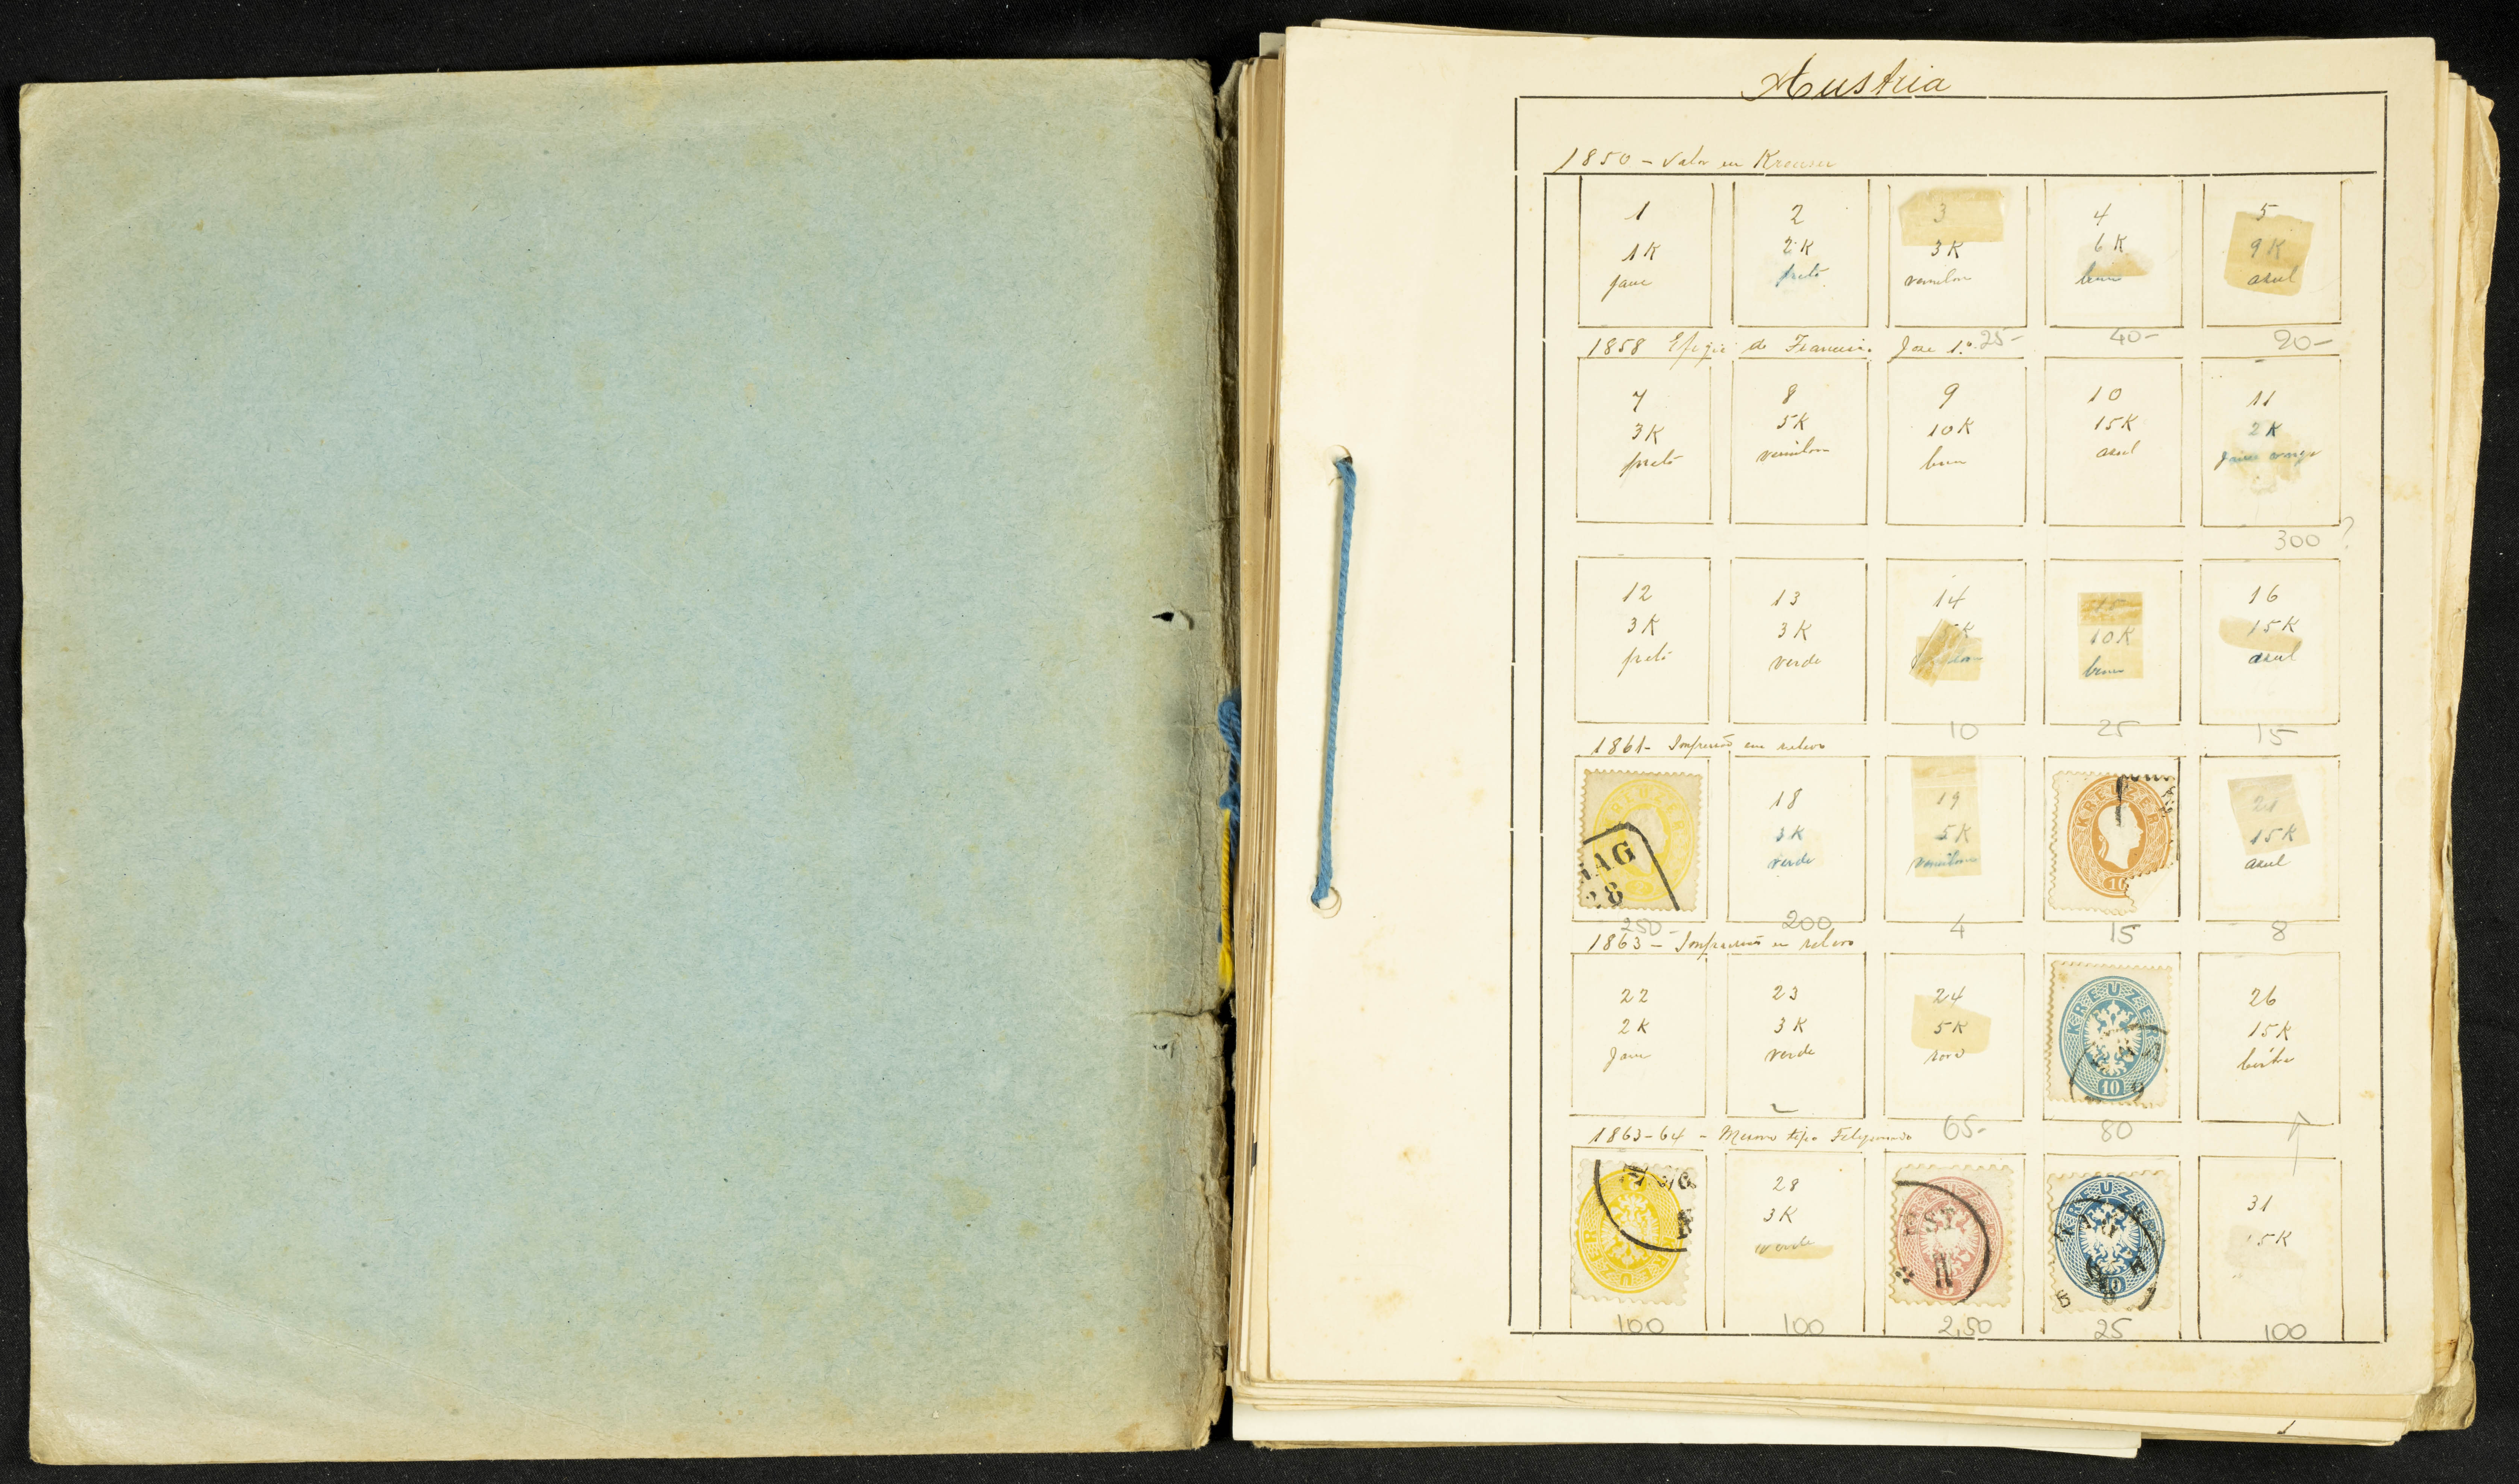 Austria
1850 - Valor em Kreuser
1 2 3 4 5
1K 2K 3K 6K 9K
preto azul
25- 40- 20-
1858 de Jose 1.º
7 8 9 10 11
3K 5K 10K 15K 2K
preto azul
300 ?
12 13 14 15 16
3K 3K 5K 10K 15K
preto verde azul
10 25 15
1861 - em relevo
KREUZER 18 19 KREUZER 21
3K 5K 10 15K
AG verde azul
28
250- 200 4 15 8
1863 - em relevo
22 23 24 KREUZER 26
2K 3K 5K 10 15K
verde
65- 80
1863-64 - Mesmo tipo
28 KREUZER 31
KREUZER 3K 5 10 15K
verde
100 100 2,50 25 100